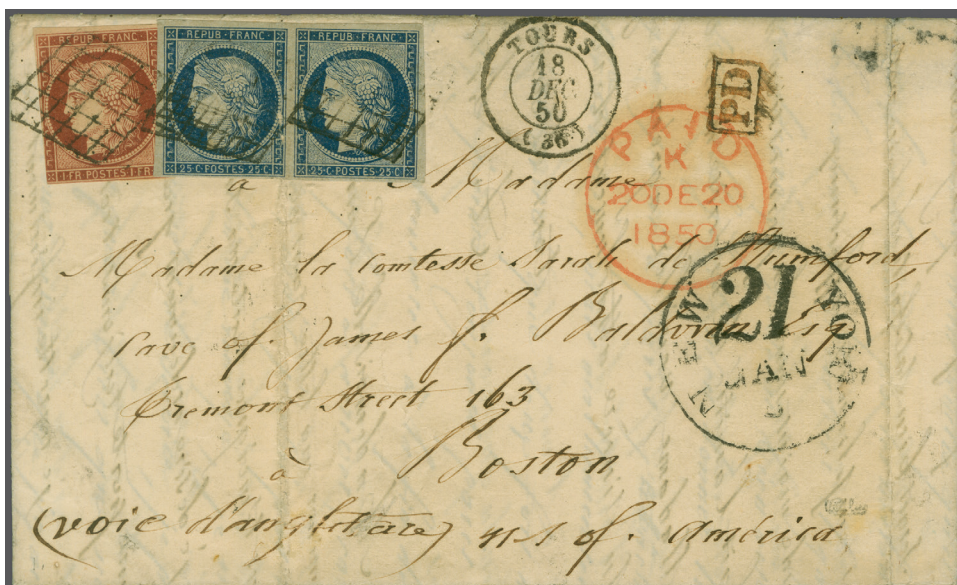 REPUB·FRANC·
1·FR·POSTES·1·FR
·REPUB·FRANC·
25·C·POSTES·25·C·
·REPUB·FRANC·
25·C·POSTES·25·C·
TOURS
18
DEC
50
(36)
PD
PAID
K
20 DE 20
1850
NEW YORK
21
JAN
à Madame
Madame la Comtesse Sarah de Mumford,
care of James f. Baldwin Esq
Tremont Street 163
à Boston
(voie d'angleterre) of. América